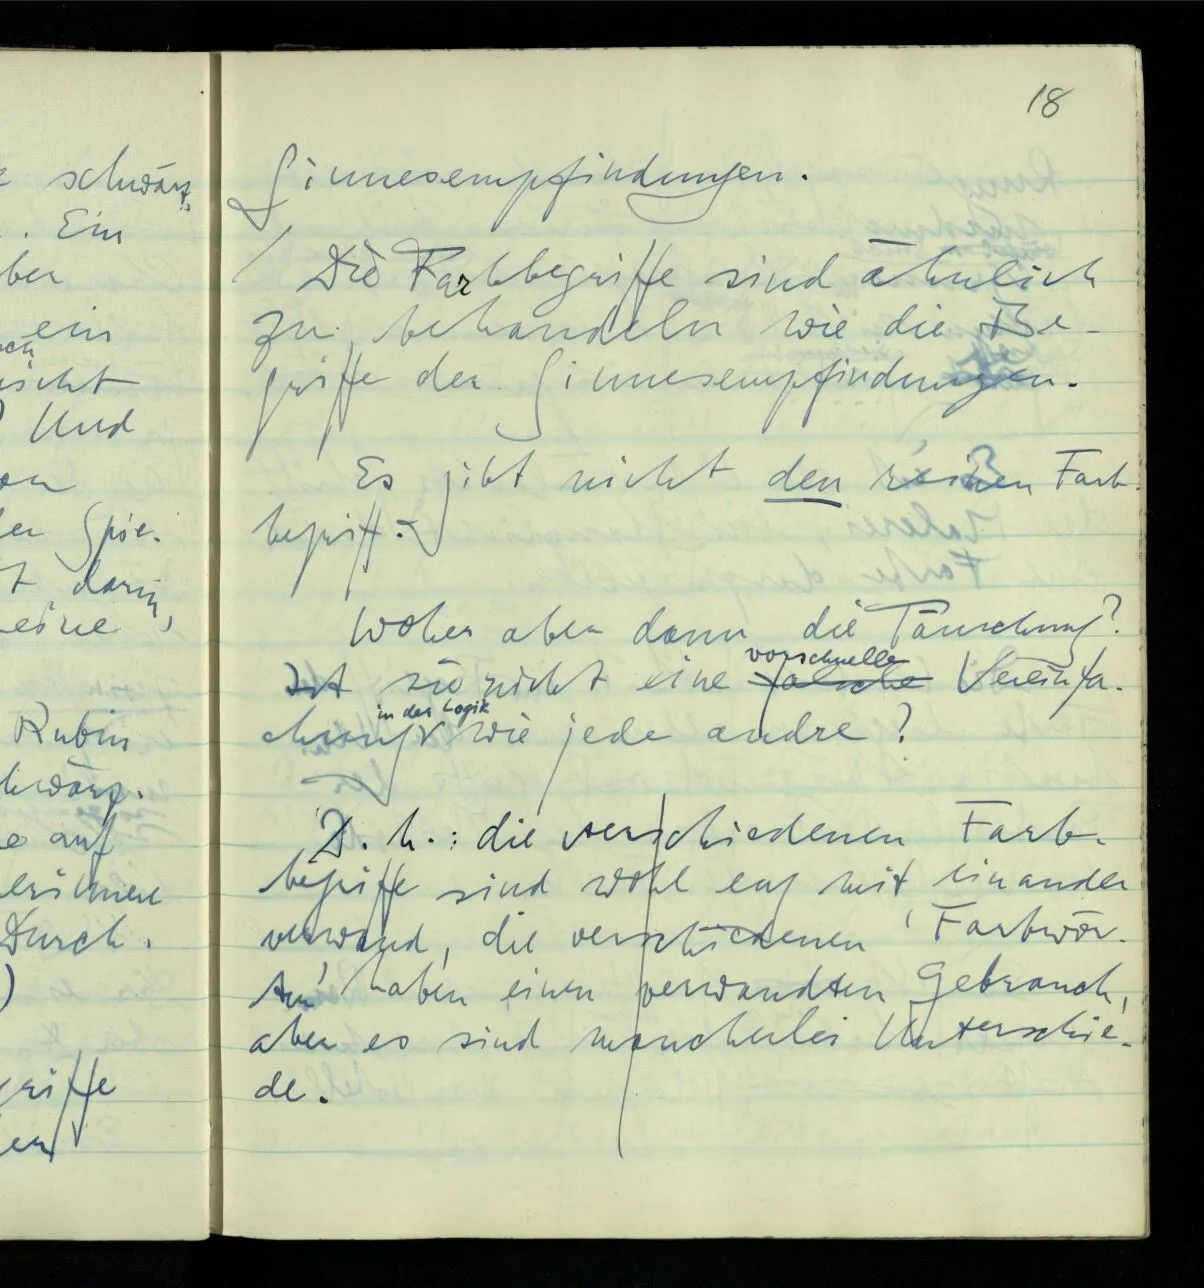 18
schwärz
. Ein
ber
ein
ischt
Und
on
er Spie-
t darin,
eine
Rubin
hwarz.
e auf
Durch.
)
griffe
Sinnesempfindungen.
/ Die Farbbegriffe sind ähnlich
zu behandeln wie die Be-
griffe der Sinnesempfindungen.
Es gibt nicht den reinen Farb-
begriff.
Woher aber dann die Täuschung?
vorschnelle
Ist sie nicht eine falsche Vereinfa-
in der Logik
chung wie jede andre?
D. h.: die verschiedenen Farb-
begriffe sind wohl eng mit einander
verwand, die verschiedenen 'Farbwör-
ter' haben einen verwandten Gebrauch,
aber es sind mancherlei Unterschie-
de.